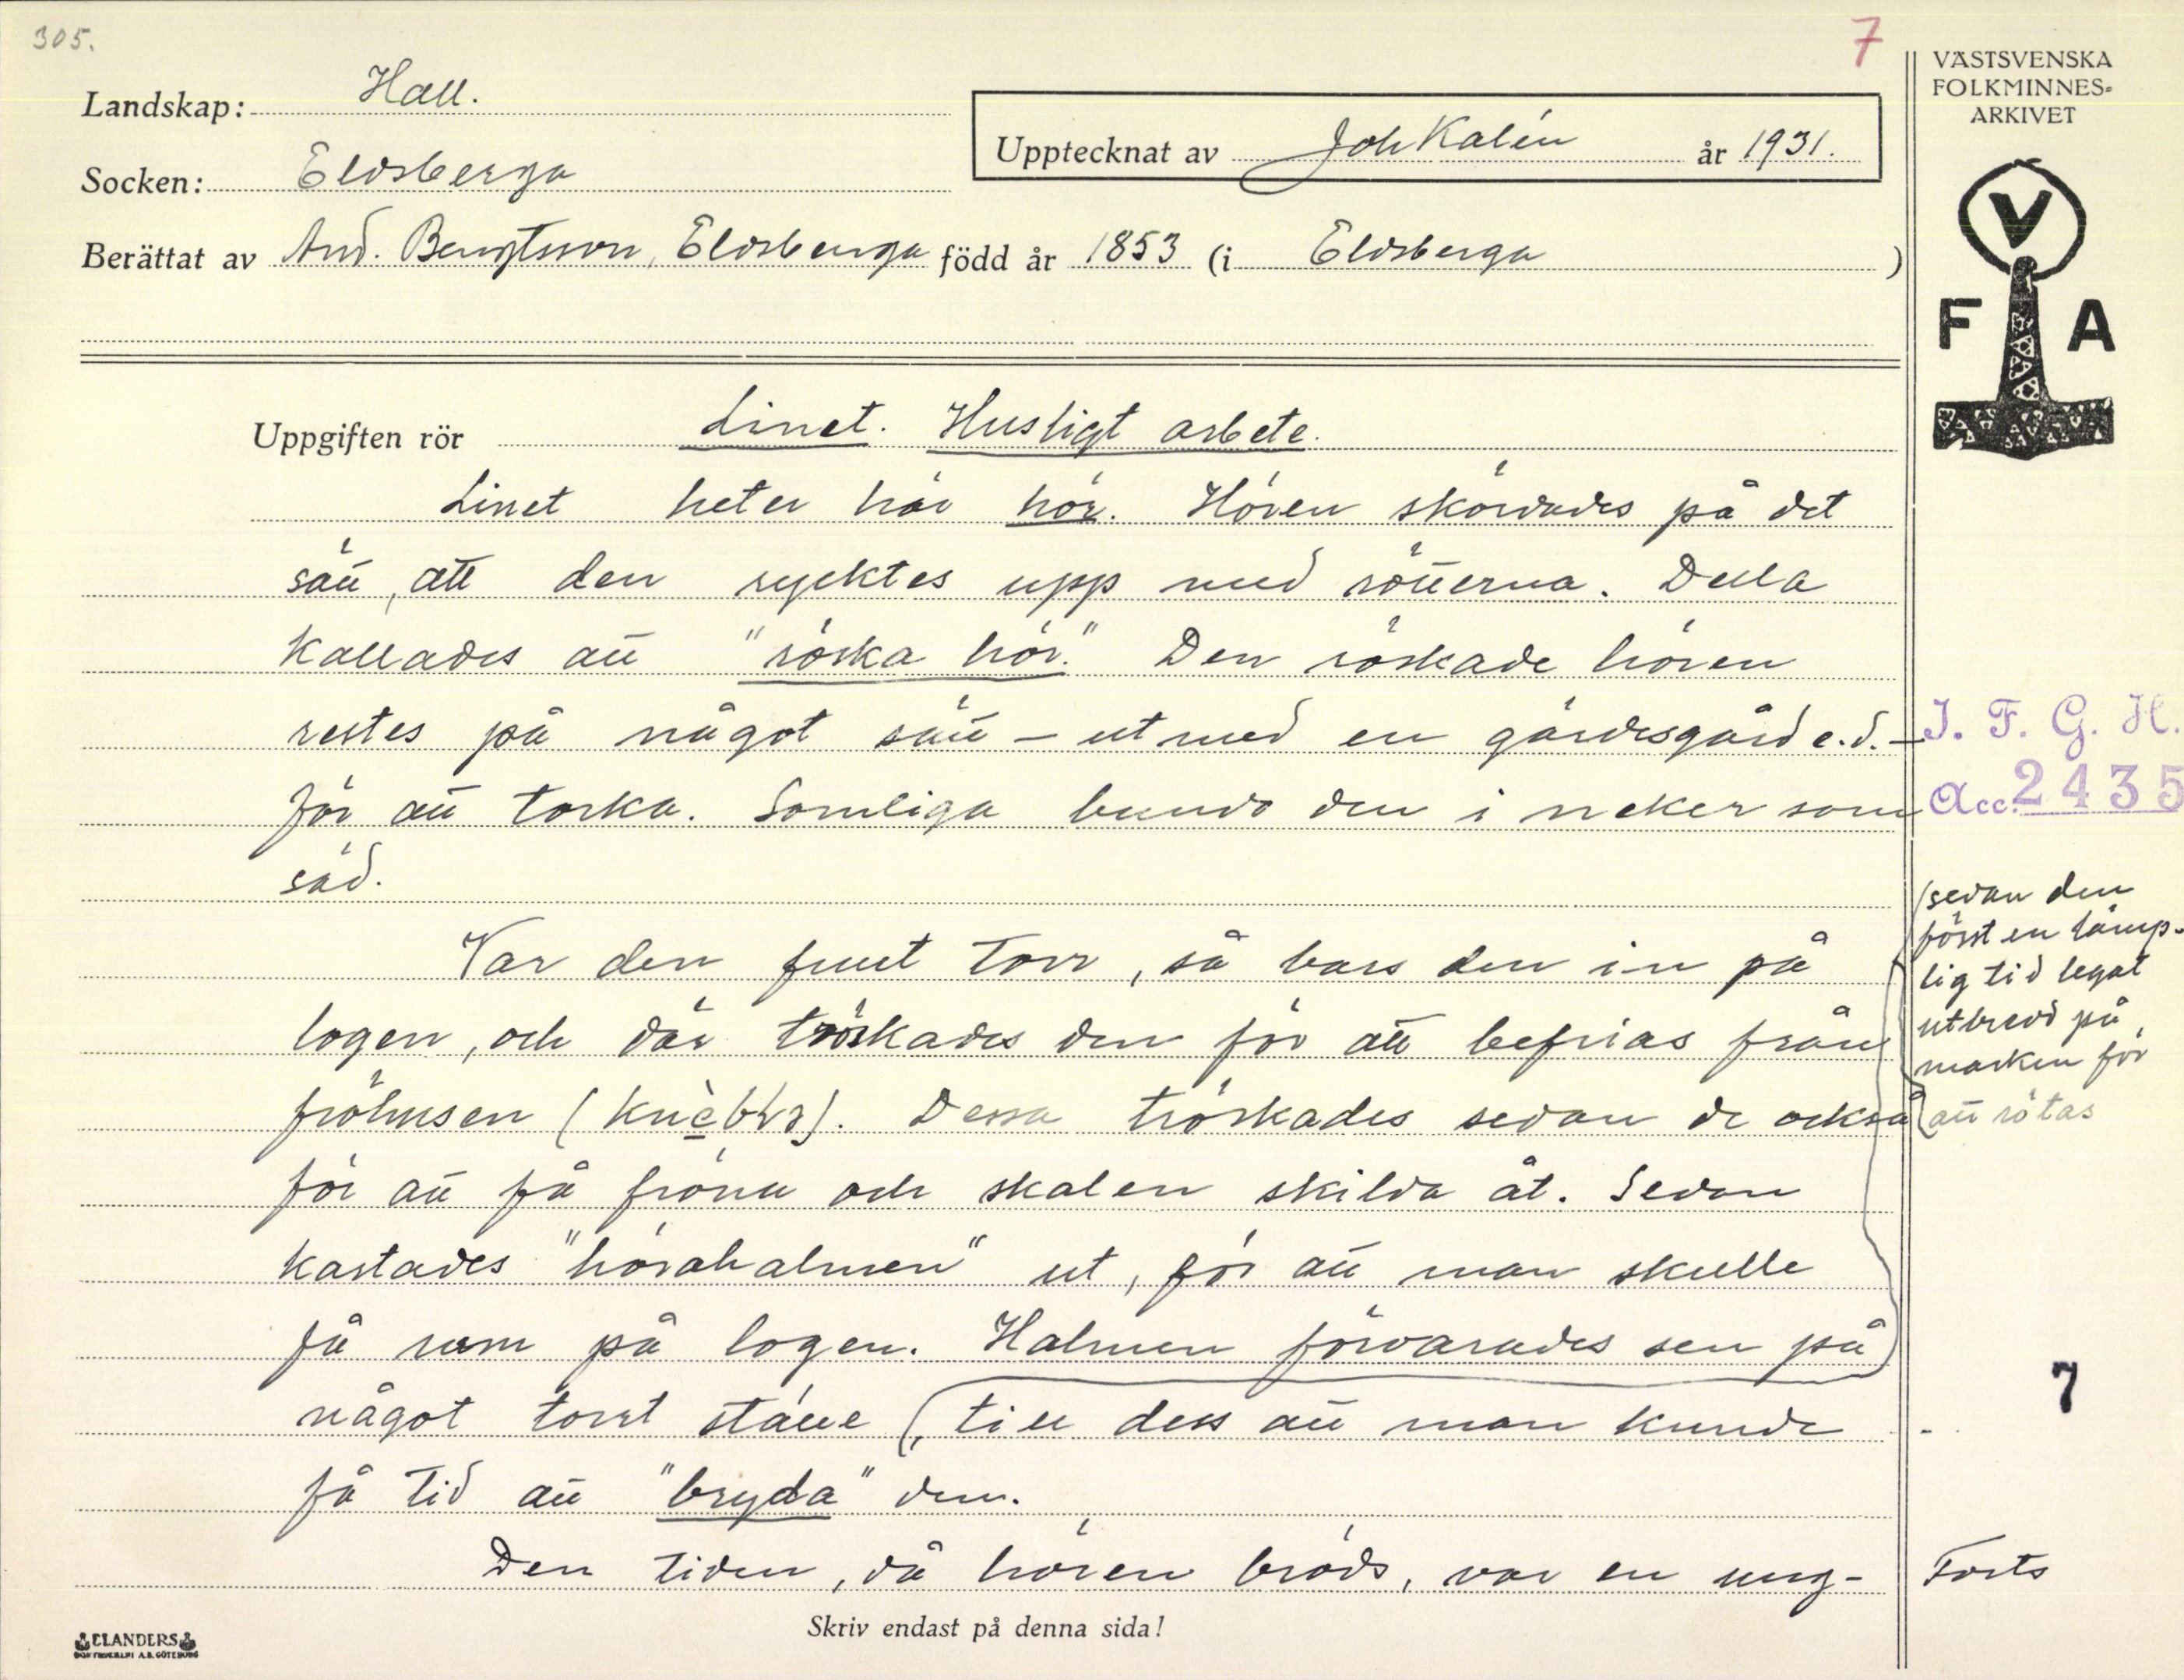 305.
7
Landskap: Hall.
Socken: Eldsberga
Upptecknat av Joh Kalén år 1931.
Berättat av And. Bengtsson, Eldsberga född år 1853 (i Eldsberga )
VÄSTSVENSKA
FOLKMINNES-
ARKIVET
V
F A
Uppgiften rör Linet. Husligt arbete.
Linet heter här hör. Hören skördades på det
sätt, att den rycktes upp med rötterna. Detta
kallades att "röska hör." Den röskade hören
restes på något sätt – utmed en gärdesgård e.d. –
för att torka. Somliga bundo den i neker som
säd.
Var den funt torr, så bars den in på
logen, och där tröskades den för att befrias från
fröhusen (        ). Dessa tröskades sedan de också
för att få fröna och skalen skilda åt. Sedan
kastades "hörahalmen" ut, för att man skulle
få rum på logen. Halmen förvarades sen på
något torrt ställe (, till dess att man kunde
få tid att "bryda" den.
Den tiden, då hören bröds, var en ung-
J. F. G. H.
Acc. 2435
(sedan den
först en lämp-
lig tid legat
utbredd på
marken för
att rötas
7
Forts
Skriv endast på denna sida!
ELANDERS
BOKTRYCKERI A.B. GÖTEBORG